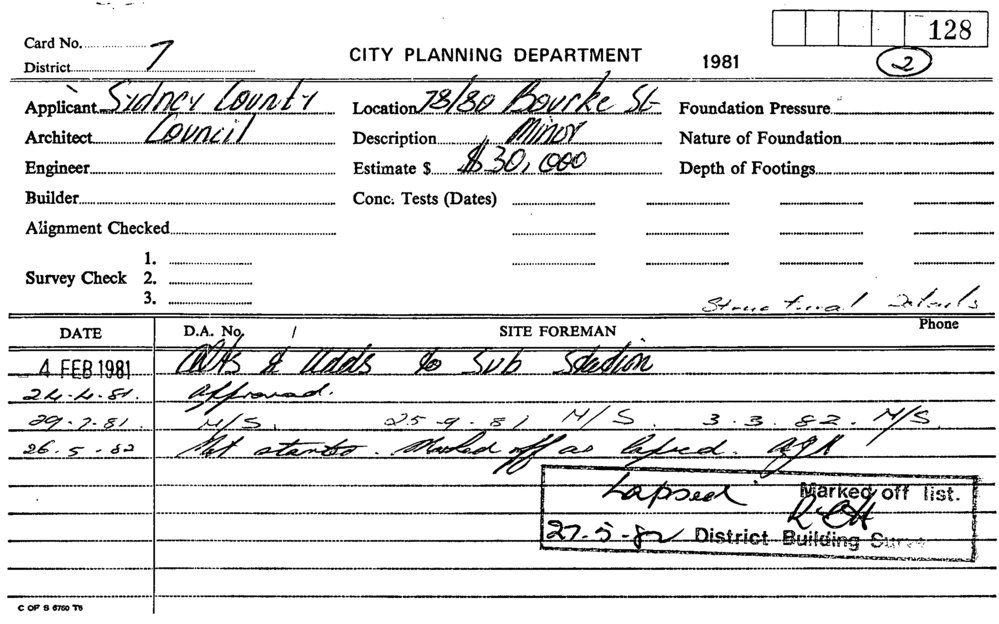 128
Card No. 7
CITY PLANNING DEPARTMENT 1981 2
District
Applicant Sydney County Location 78/80 Bourke St Foundation Pressure
Architect Council Description Minor Nature of Foundation
Engineer Estimate $ $30,000 Depth of Footings
Builder Conc. Tests (Dates)
Alignment Checked
1.
Survey Check 2.
3.
Structural Details
DATE D.A. No. SITE FOREMAN Phone
4 FEB 1981 Alts & Adds to Sub Station
24.4.81. approved.
29.7.81. M/S. 25-9-81 M/S. 3.3.82. M/S.
26.5.82 Not started. Marked off as lapsed.
Lapsed Marked off list.
27-5-82 District Building
C OF S 6760 T6